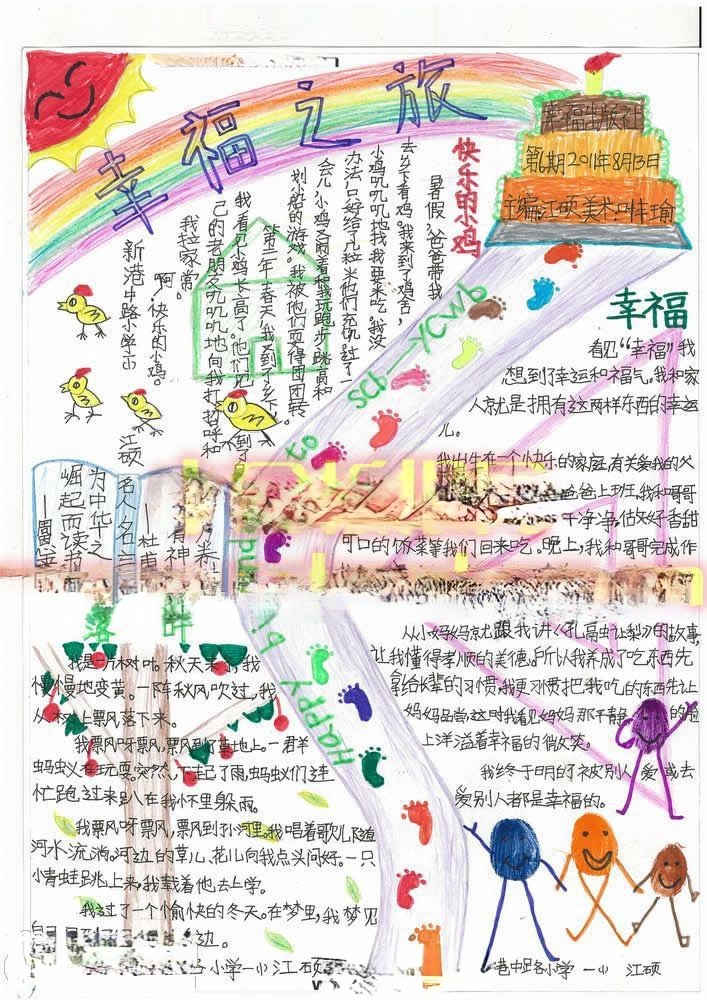 幸福之旅
幸福出版社
第6期 2011年8月13日
主编:江硕 美术:叶瑜
快乐的小鸡
暑假,爸爸带我
去乡下看鸡。我来到了鸡舍,
小鸡叽叽叽地找我要米吃。我没
办法,只好给了几粒米他们充饥。过了一
会儿,小鸡又闹着和我玩跑步、跳高和
划小船的游戏。我被他们耍得团团转。
第二年春天,我又到了乡下。
我看见小鸡长高了。他们见到了自
己的老朋友,叽叽叽地向我打招呼和
我拉家常。
啊,快乐的小鸡。
新港中路小学
江硕
to sch—YCWb
Happy
幸福
看见“幸福”我
想到了幸运和福气。我和家
人就是拥有这两样东西的幸运
儿。
我出生在一个快乐的家庭,有关爱我的父
爸爸上班,我和哥哥
干净净,估好香甜
可口的饭菜等我们回来吃。晚上,我和哥哥完成作
从小妈妈就跟我讲《孔融让梨》的故事,
让我懂得孝顺的美德。所以我养成了吃东西先
拿给长辈的习惯,我更习惯把我吃的东西先让
妈妈品尝,这时我看见妈妈那平静的脸
上洋溢着幸福的微笑。
我终于明白了被别人爱或去
爱别人都是幸福的。
港中路小学 一(1) 江硕
名人名言
为中华之
崛起而读书
有神
—杜甫
落叶
我是一片树叶。秋天来了,我
慢慢地变黄。一阵秋风吹过,我
从树上飘落下来。
我飘呀飘,飘到了草地上。一群
蚂蚁在玩耍。突然,下起了雨,蚂蚁们连
忙跑过来趴在我怀里躲雨。
我飘呀飘,飘到小河里。我唱着歌儿随着
河水流淌。河边的草儿、花儿向我点头问好。一只
小青蛙跳上来,我载着他去上学。
我过了一个愉快的冬天。在梦里,我梦见
边。
小学 一(1) 江硕